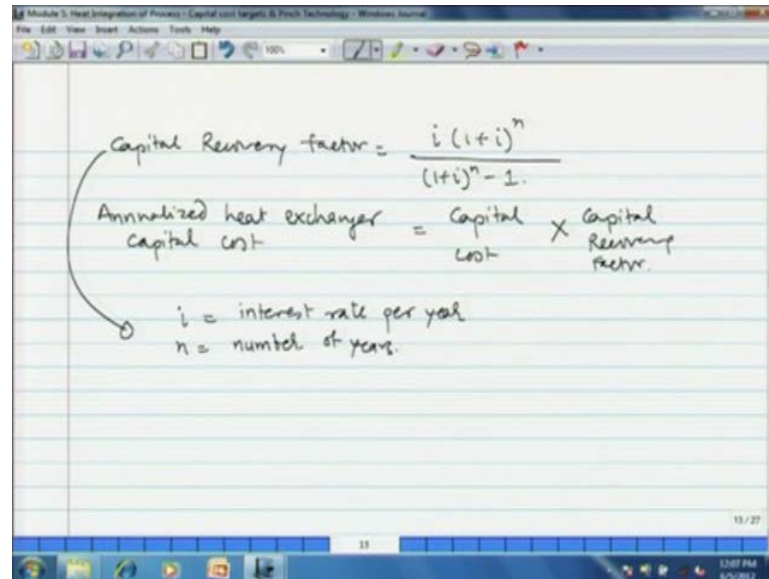 Module 5: Heat Integration of Process - Capital cost targets & Pinch Technology - Windows Journal
File Edit View Insert Actions Tools Help
100%
Capital Recovery factor = i (1+i)^n
(1+i)^n - 1.
Annualized heat exchanger = Capital × Capital
Capital cost cost Recovery
factor.
i = interest rate per year
n = number of years.
13 / 27
13
12:07 PM